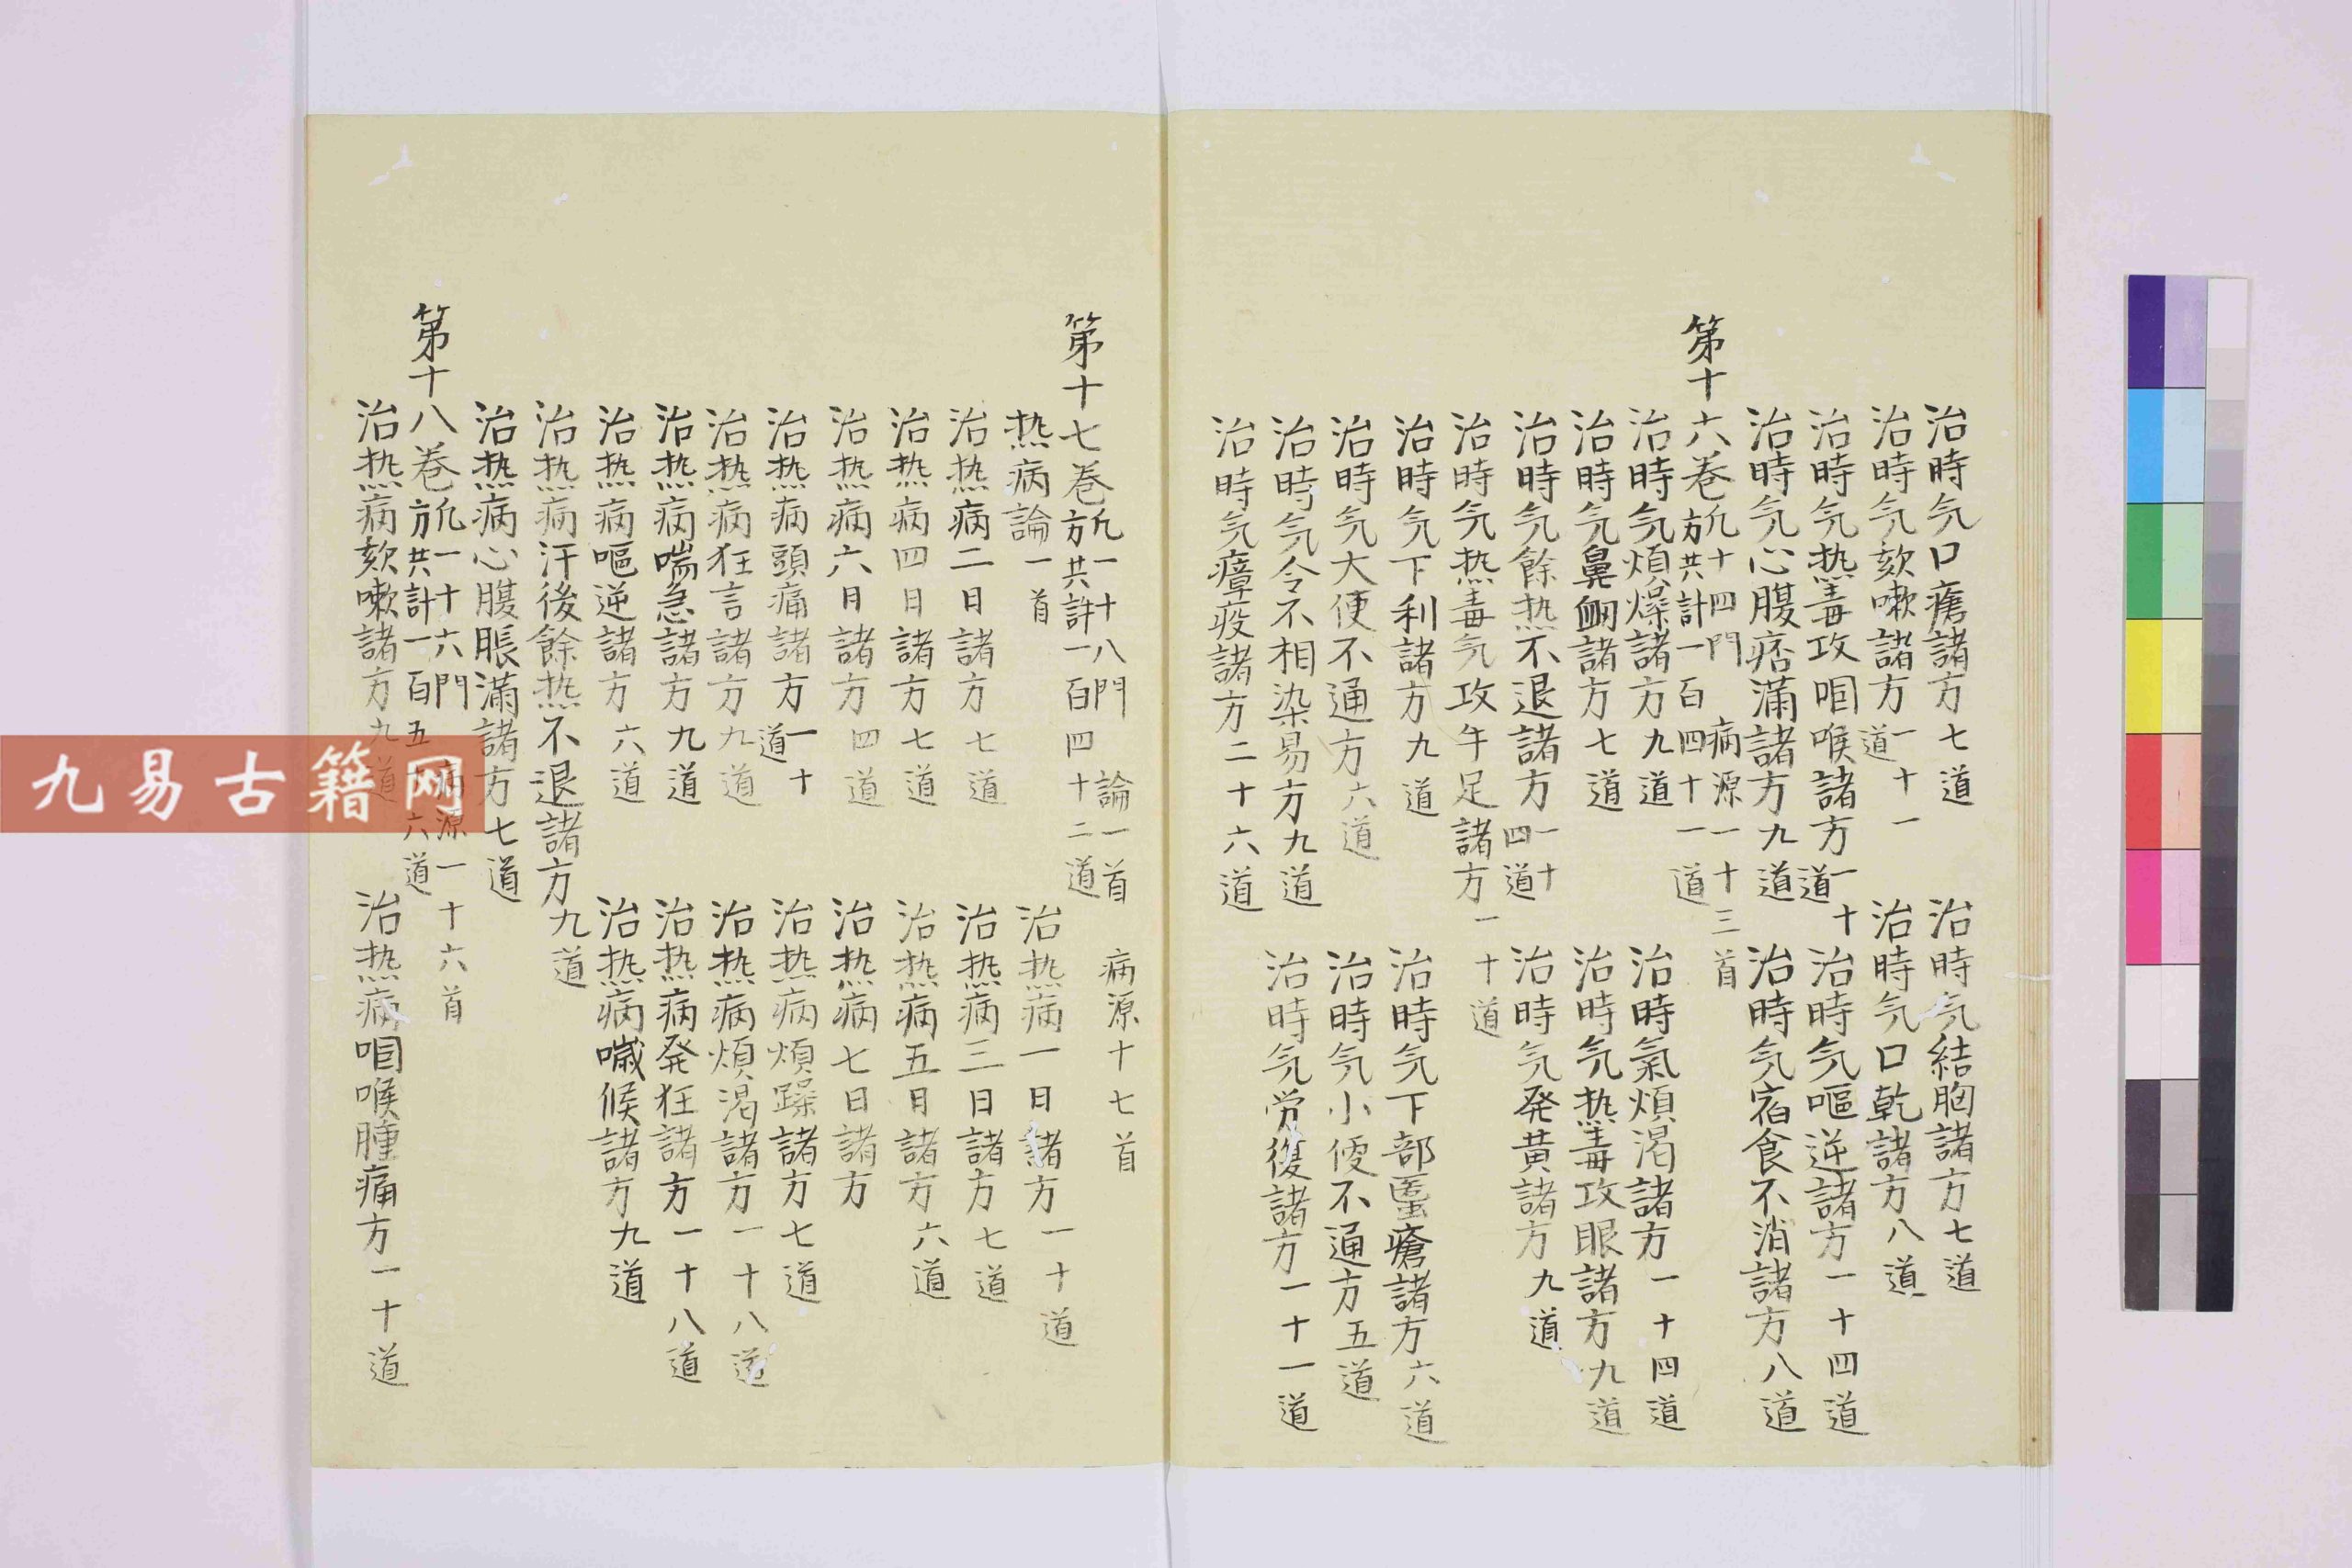 治時気口瘡諸方七道　治時気結胸諸方七道
治時気欬嗽諸方一十一道　治時気口乾諸方八道
治時気热毒攻咽喉諸方一十道　治時気嘔逆諸方一十四道
治時気心腹痞滿諸方九道　治時気宿食不消諸方八道
第十六巻凢十四門　病源一十三首方共計一百四十一道
治時気煩燥諸方九道　治時氣煩渴諸方一十四道
治時気鼻衄諸方七道　治時気热毒攻眼諸方九道
治時気餘热不退諸方一十四道　治時気発黄諸方九道
治時気热毒気攻手足諸方一十道
治時気下利諸方九道　治時気下部䘌瘡諸方六道
治時気大便不通方六道　治時気小便不通方五道
治時気令不相染易方九道　治時気労復諸方一十一道
治時気瘴疫諸方二十六道
第十七巻凢一十八門　論一首　病源十七首方共計一百四十二道
热病論一首　治热病一日諸方一十道
治热病二日諸方七道　治热病三日諸方七道
治热病四日諸方七道　治热病五日諸方六道
治热病六日諸方四道　治热病七日諸方
治热病頭痛諸方一十道　治热病煩躁諸方七道
治热病狂言諸方九道　治热病煩渴諸方一十八道
治热病喘急諸方九道　治热病発狂諸方一十八道
治热病嘔逆諸方六道　治热病嘁候諸方九道
治热病汗後餘热不退諸方九道
治热病心腹脹滿諸方七道
第十八巻凢一十六門　病源一十六首方共計一百五十六道
治热病欬嗽諸方九道　治热病咽喉腫痛方一十道
九易古籍网